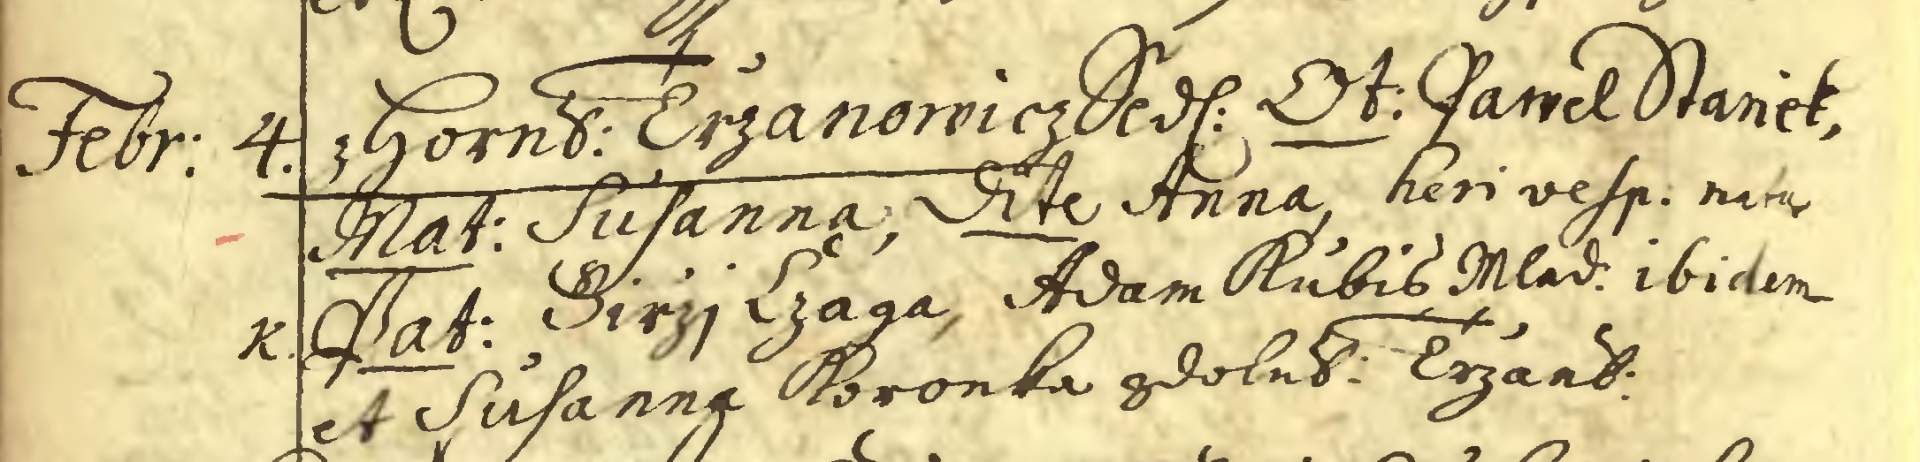 Febr: 4. z Hornÿ: Trżanowicz Sedl: Ot: Pawel Staniek,
Mat: Susanna, Dite Anna, heri vesp. nata
K. Pat: Girżj Czaga, Adam Kubis Mlad: ibidem
et Susanna Koronka z dolnÿ: Trżanÿ: